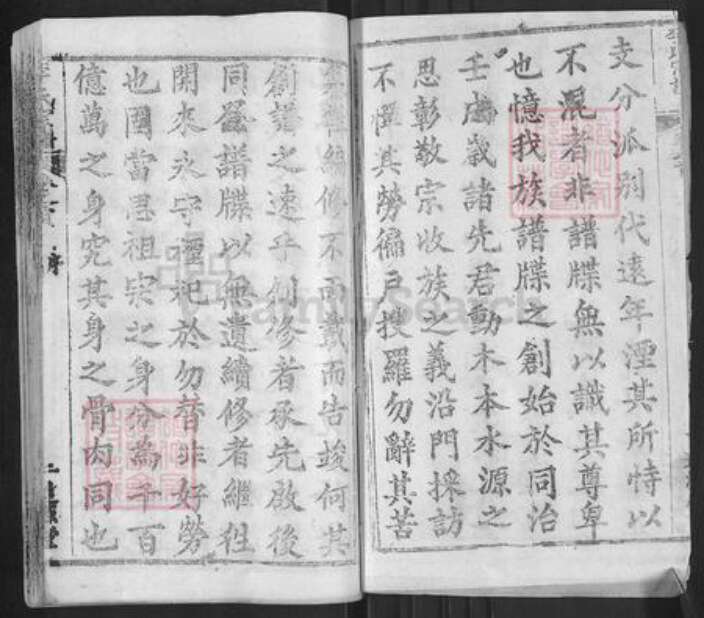 支分派別代遠年湮其所恃以
不混者非譜牒無以識其尊卑
也憶我族譜牒之創始於同治
壬戌歲諸先君動木本水源之
思彰敬宗收族之義沿門採訪
不憚其勞徧戶搜羅勿辭其苦
修不兩載而告竣何其
創譜之速乎創修者承先啟後
同登譜牒以無遺續修者繼往
開來永守禋祀於勿替非好勞
也固當思祖宗之身分為千百
億萬之身究其身之骨肉同也
FamilySearch